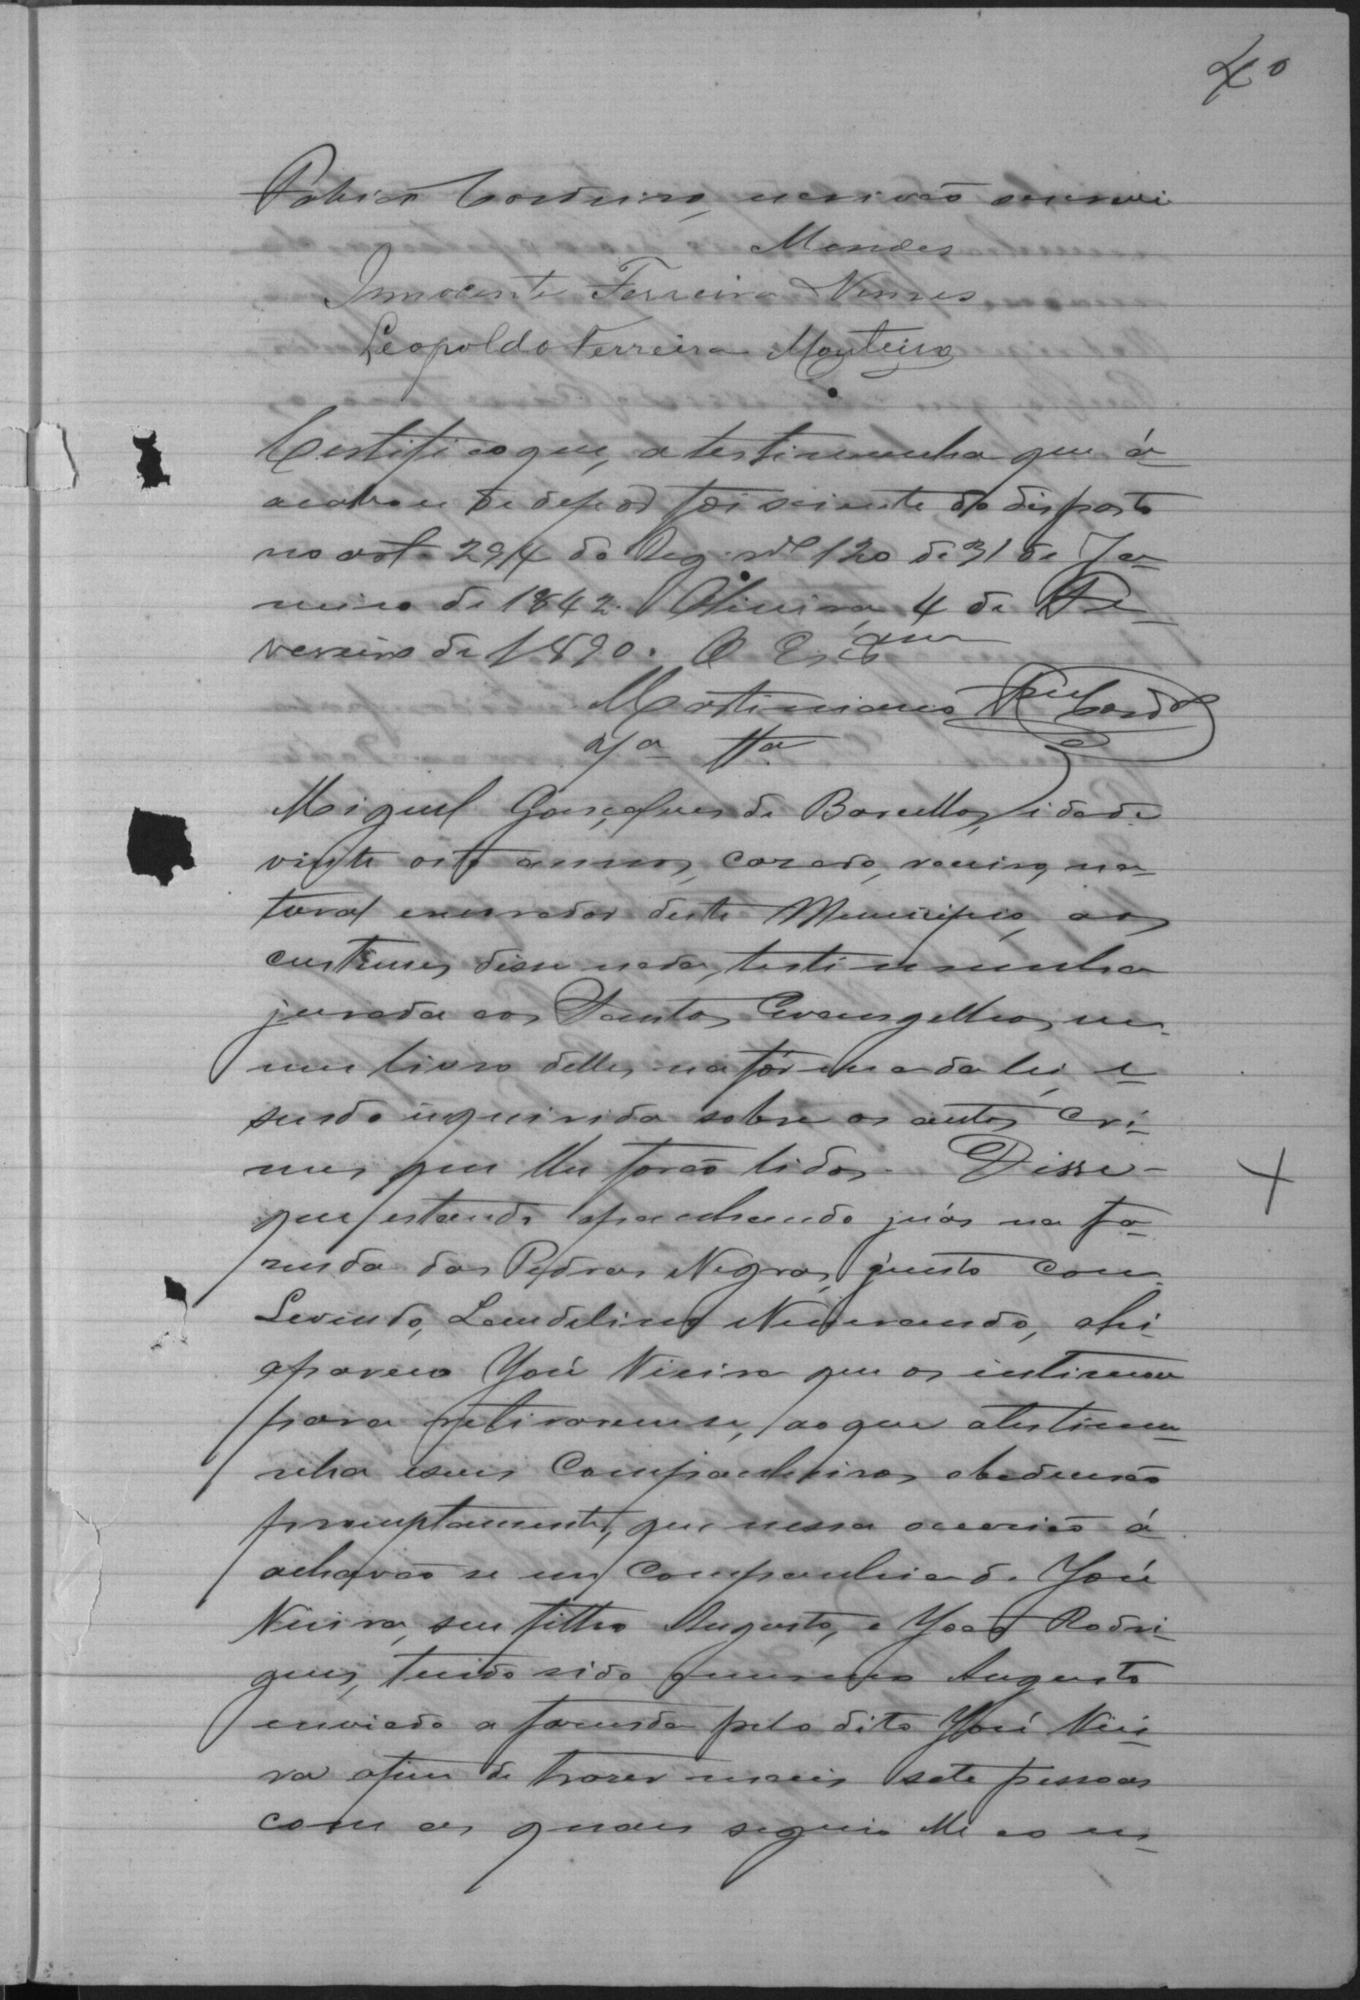 40
Cordeiro, escrivão escrevi
Mendes
Innocente Ferreira Nunes
Leopoldo Ferreira Monteiro
Certifico que, a testimunha que á
acabou de depor foi sciente do disposto
no art. 294 do Reg. nº 120 de 31 de Ja-
neiro de 1842. Oliveira, 4 de Fe-
vereiro de 1890. O Escram
Martiniano
ta
Miguel Gonçalves de Barcellos, idade
vinte oito annos, casado, na-
tural e morador deste Municipio, aos
custumes disse nada, testimunha
jurada aos Santos Evangelhos em
um livro delles na fórma da lei, e
sendo inquirida sobre os autos cri-
mes que lhe forão lidos. Disse
que estando apanhando na fa-
zenda das Pedras Negras, junto com
Levindo, Laudelino ahi
apareceo José Vieira que os intimou
para retirarem se, ao que a testimu-
nha e seus Companheiros obedecerão
promptamente, que nessa occasião á
achavão se em companhia de José
Vieira, seu filho Augusto, e João Rodri-
gues, tendo sido o mesmo Augusto
enviado a fazenda pelo dito José Viei-
ra afim de trazer mais sete pessoas
com as quaes seguio